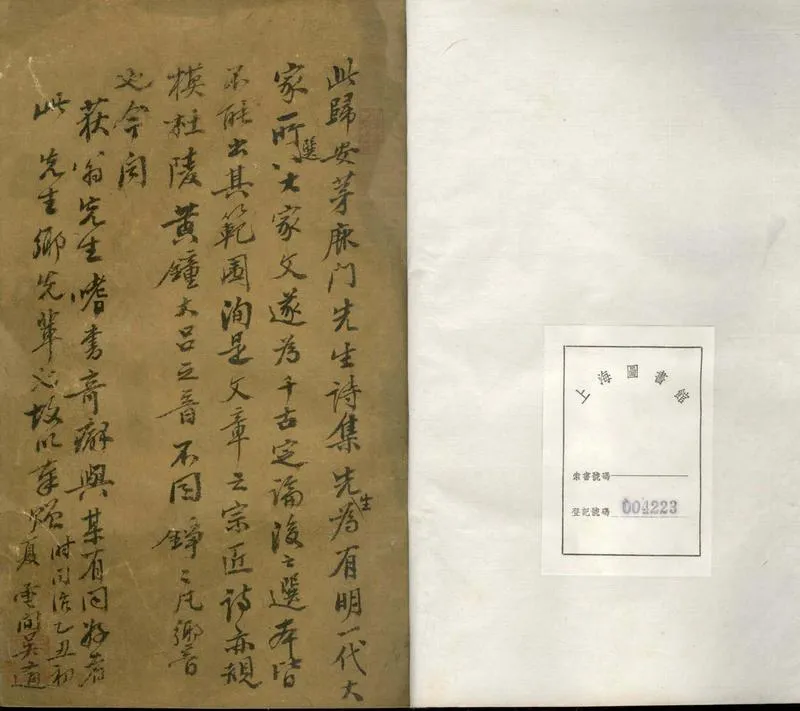 此歸安茅鹿门先生詩集先生為有明一代大
家所選八大家文遂為千古定論後之選本皆
不能出其範圍洵是文章之宗匠詩亦規
模杜陵黄鐘大吕之音不同錚々凡鄉音
也今閱
荻翁先生嗜書奇癖與某有同好者
此 先生鄉先輩也故以奉贈
时同治乙丑初
夏雲間吴適
上海圖書館
索書號碼
登記號碼 004223